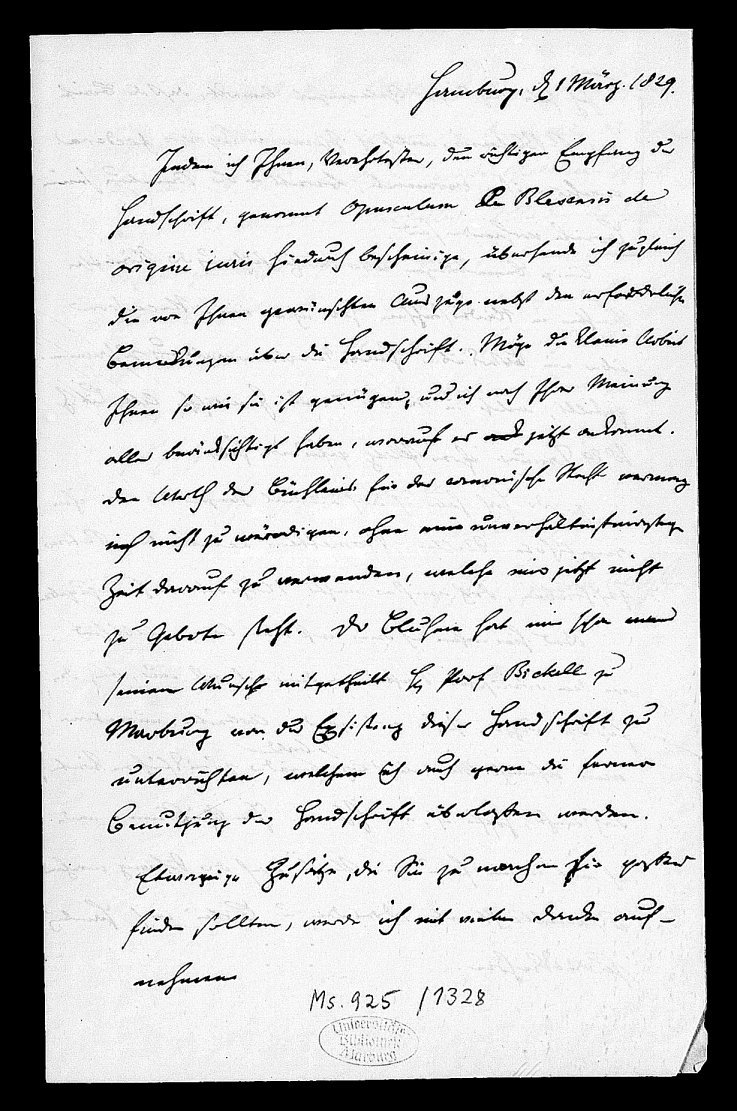 Hamburg, d 1 März. 1829.
Indem ich Ihnen, Verehrtester, den richtigen Empfang der
Handschrift, genannt Opusculum Blesensis de
origine juris hiedurch bescheinige, übersende ich zugleich
die von Ihnen gewünschten Auszüge nebst den erforderlichen
Bemerkungen über die Handschrift. Möge die kleine Arbeit
Ihnen so wie sie ist genügen, und ich nach Ihrer Meinung
alles berücksichtigt haben, worauf es jetzt ankommt.
Den Werth des Büchleins für das canonische Recht vermag
ich nicht zu würdigen, ohne eine unverhältnißmäßige
Zeit darauf zu verwenden, welche mir jetzt nicht
zu Gebote steht. Dr Bluhme hat mir schon
seinen Wunsch mitgetheilt H Prof Bickell zu
Marburg von der Existenz dieser Handschrift zu
unterrichten, welchem ich auch gerne die fernere
Benutzung der Handschrift überlaßen werde.
Etwanige Zusätze, die Sie zu machen für
finden sollten, werde ich mit vielem Danke auf-
nehmen
Ms. 925 /1328
Universitäts
Bibliothek
Marburg